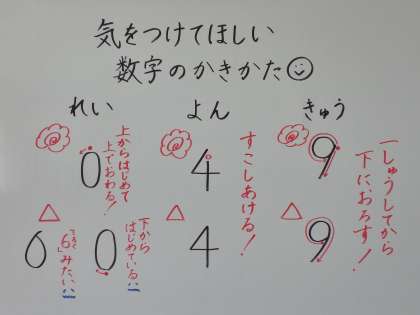 気をつけてほしい
数字のかきかた
れい
よん
きゅう
0
上からはじめて
上でおわる！
4
すこしあける！
9
一しゅうしてから
下におろす！
0
「6」みたい!!
0
下から
はじめている!!
4
9